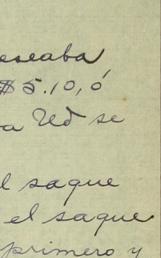 eseaba
$5.10, ó
a Ud se
l saque
el saque
primero y